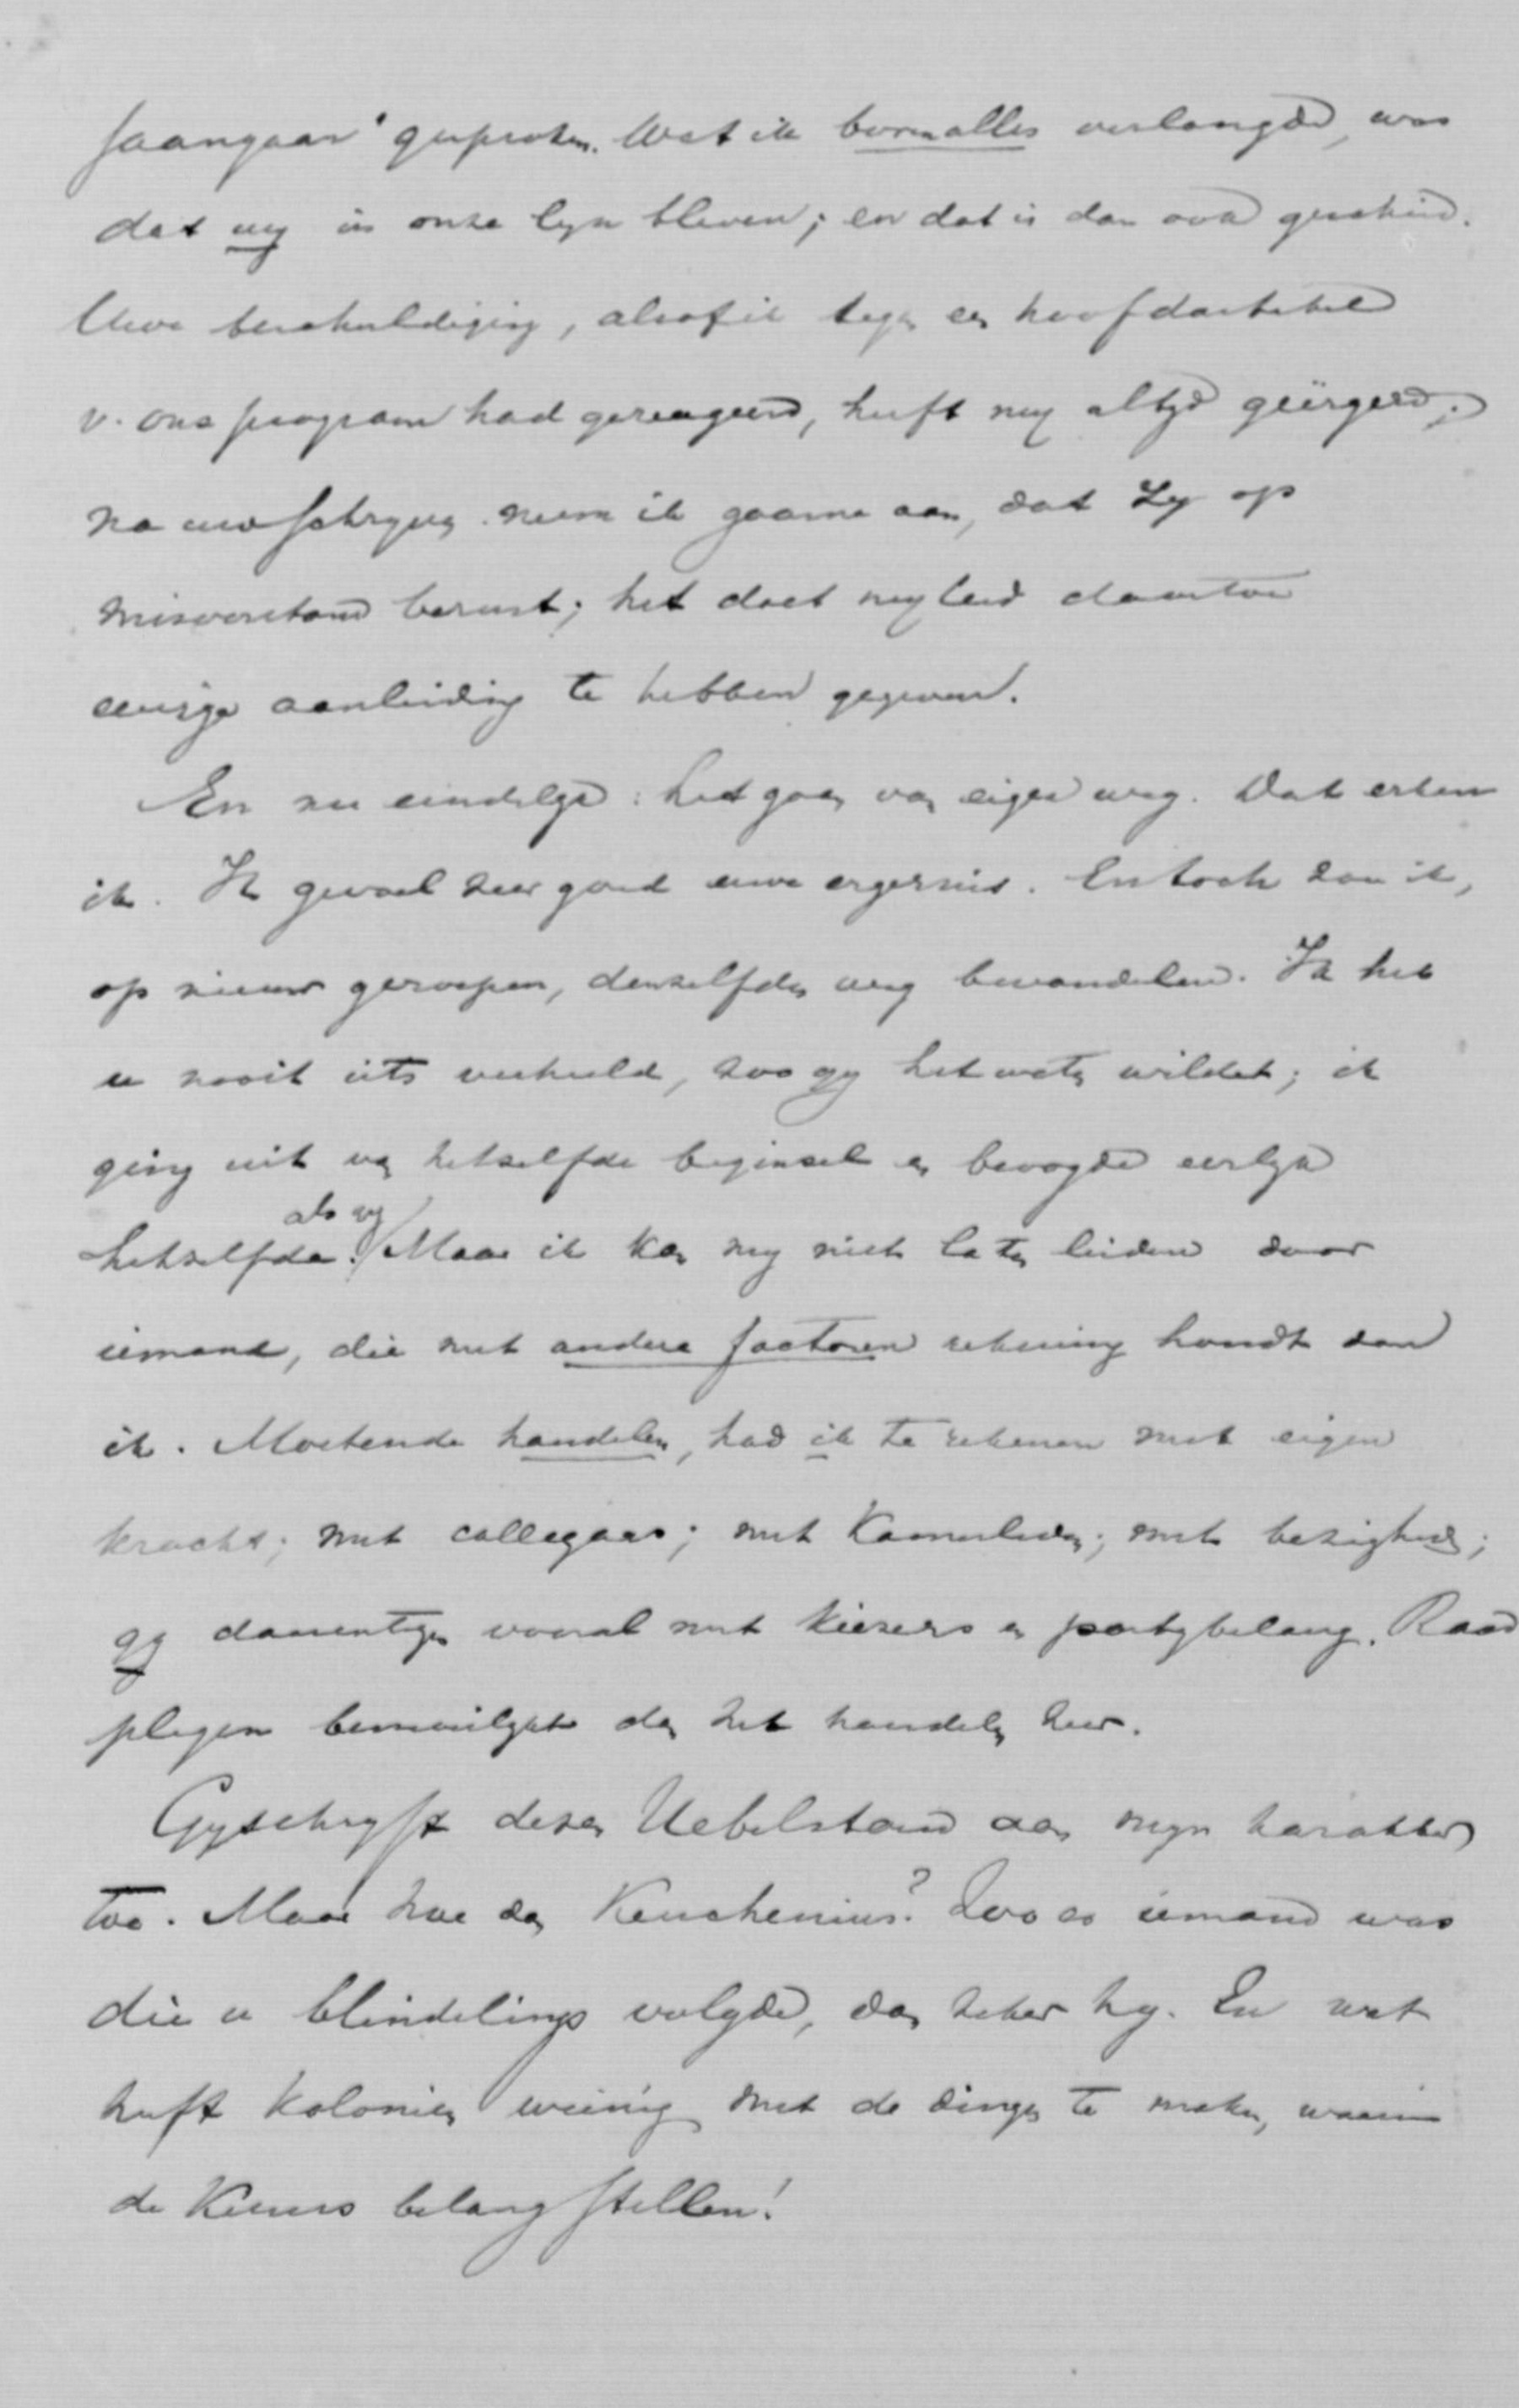 gaangaar" gesproken. Wat ik bovenalles verlangde, was
dat wy in onze lyn bleven; en dat is dan ook geschied.
Uwe beschuldiging, alsof ik tegen een hoofdartikel
v. ons program had gereageerd, heeft my altyd geërgerd;
na uw schryven neem ik gaarne aan, dat zy op
misverstand berust; het doet my leed daartoe
eenige aanleiding te hebben gegeven.
En nu eindelyk: het gaan van eigen weg. Dat erken
ik. Ik gevoel zeer goed uwe ergernis. En toch zou ik,
op nieuw geroepen, denzelfden weg bewandelen. Ik heb
u nooit iets verheeld, zoo gy het weten wildet; ik
ging uit van hetzelfde beginsel en beoogde eerlyk
als gy
hetzelfde. Maar ik kan my niet laten leiden door
iemand, die met andere factoren rekening houdt dan
ik. Moetende handelen, had ik te rekenen met eigen
kracht; met collegaas; met Kamerleden; met bezigheid;
gy daarentegen vooral met kiezers en partybelang. Raad
plegen bemoeilykt dan het handelen zeer.
Gy schryft dezen Uebelstand aan myn karakter
toe. Maar hoe dan Keuchenius? Zoo er iemand was
die u blindelings volgde, dan zeker hy. En wat
heeft Koloniën weinig met de dingen te maken, waarin
de Kiezers belang stellen!